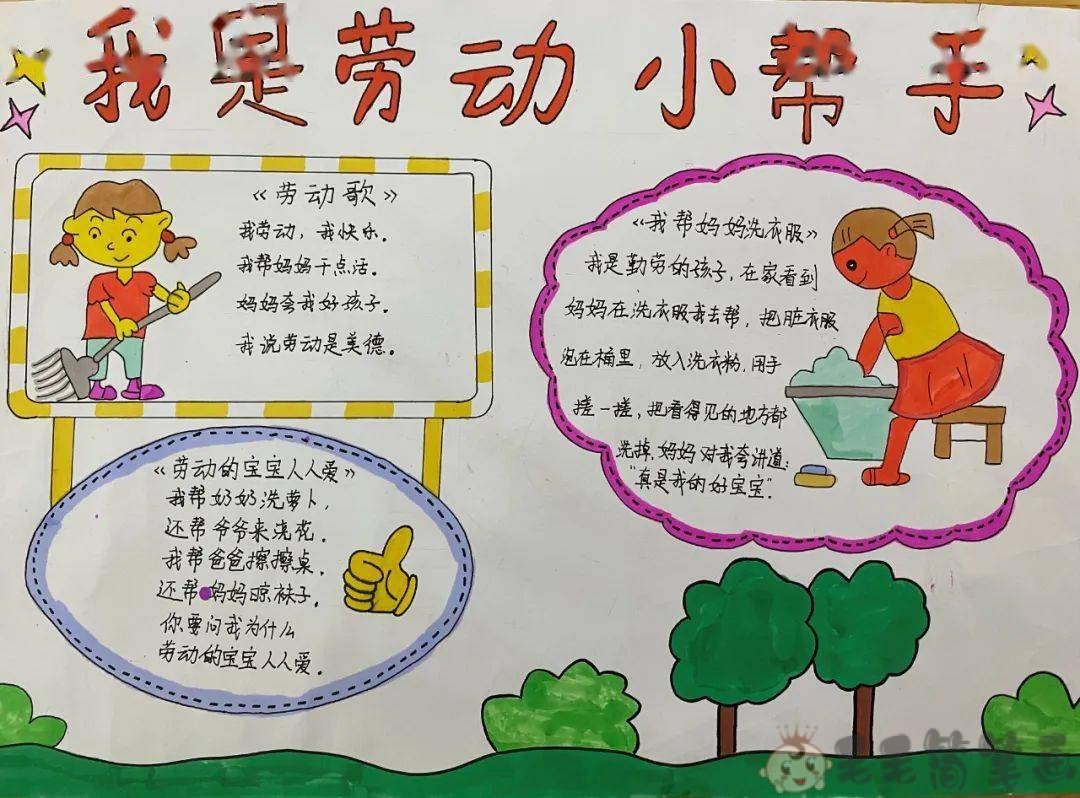 我是劳动小帮手
《劳动歌》
我劳动，我快乐。
我帮妈妈干点活。
妈妈夸我好孩子。
我说劳动是美德。
《劳动的宝宝人人爱》
我帮奶奶洗萝卜，
还帮爷爷来浇花。
我帮爸爸擦擦桌。
还帮妈妈晾袜子。
你要问我为什么
劳动的宝宝人人爱。
《我帮妈妈洗衣服》
我是勤劳的孩子，在家看到
妈妈在洗衣服我去帮，把脏衣服
泡在桶里，放入洗衣粉，用手
搓一搓，把看得见的地方都
洗掉，妈妈对我夸讲道：
"真是我的好宝宝"。
简笔画